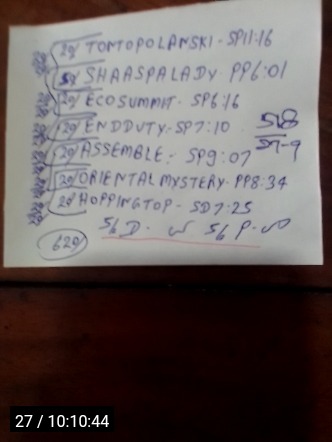 20/ TONTOPOLANSKI - SP11:16
50/ SHAASPALADY PP6:01
20/ ECOSUMMIT - SP6:16
20/ ENDDUTY - SP7:10
20/ ASSEMBLE - SP9:07
20/ ORIENTALMYSTERY - PP8:34
20/ HOPPINGTOP - SD7:25
629
27 / 10:10:44